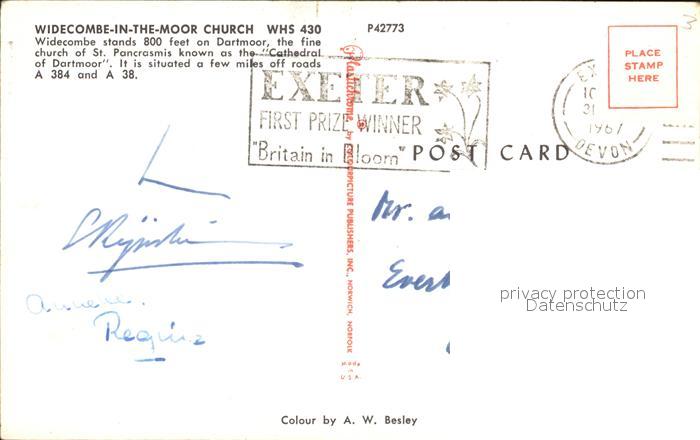 WIDECOMBE-IN-THE-MOOR CHURCH WHS 430
Widecombe stands 800 feet on Dartmoor, the fine
church of St. Pancrasmis known as the "Cathedral
of Dartmoor". It is situated a few miles off roads
A 384 and A 38.
P42773
PLACE
STAMP
HERE
EXETER
FIRST PRIZE WINNER
"Britain in Bloom"
1967
DEVON
POST CARD
Plastichrome ® by COLOURPICTURE PUBLISHERS, INC., NORWICH, NORFOLK
MADE
IN
U.S.A.
Mr.
Regina
privacy protection
Datenschutz
Colour by A. W. Besley